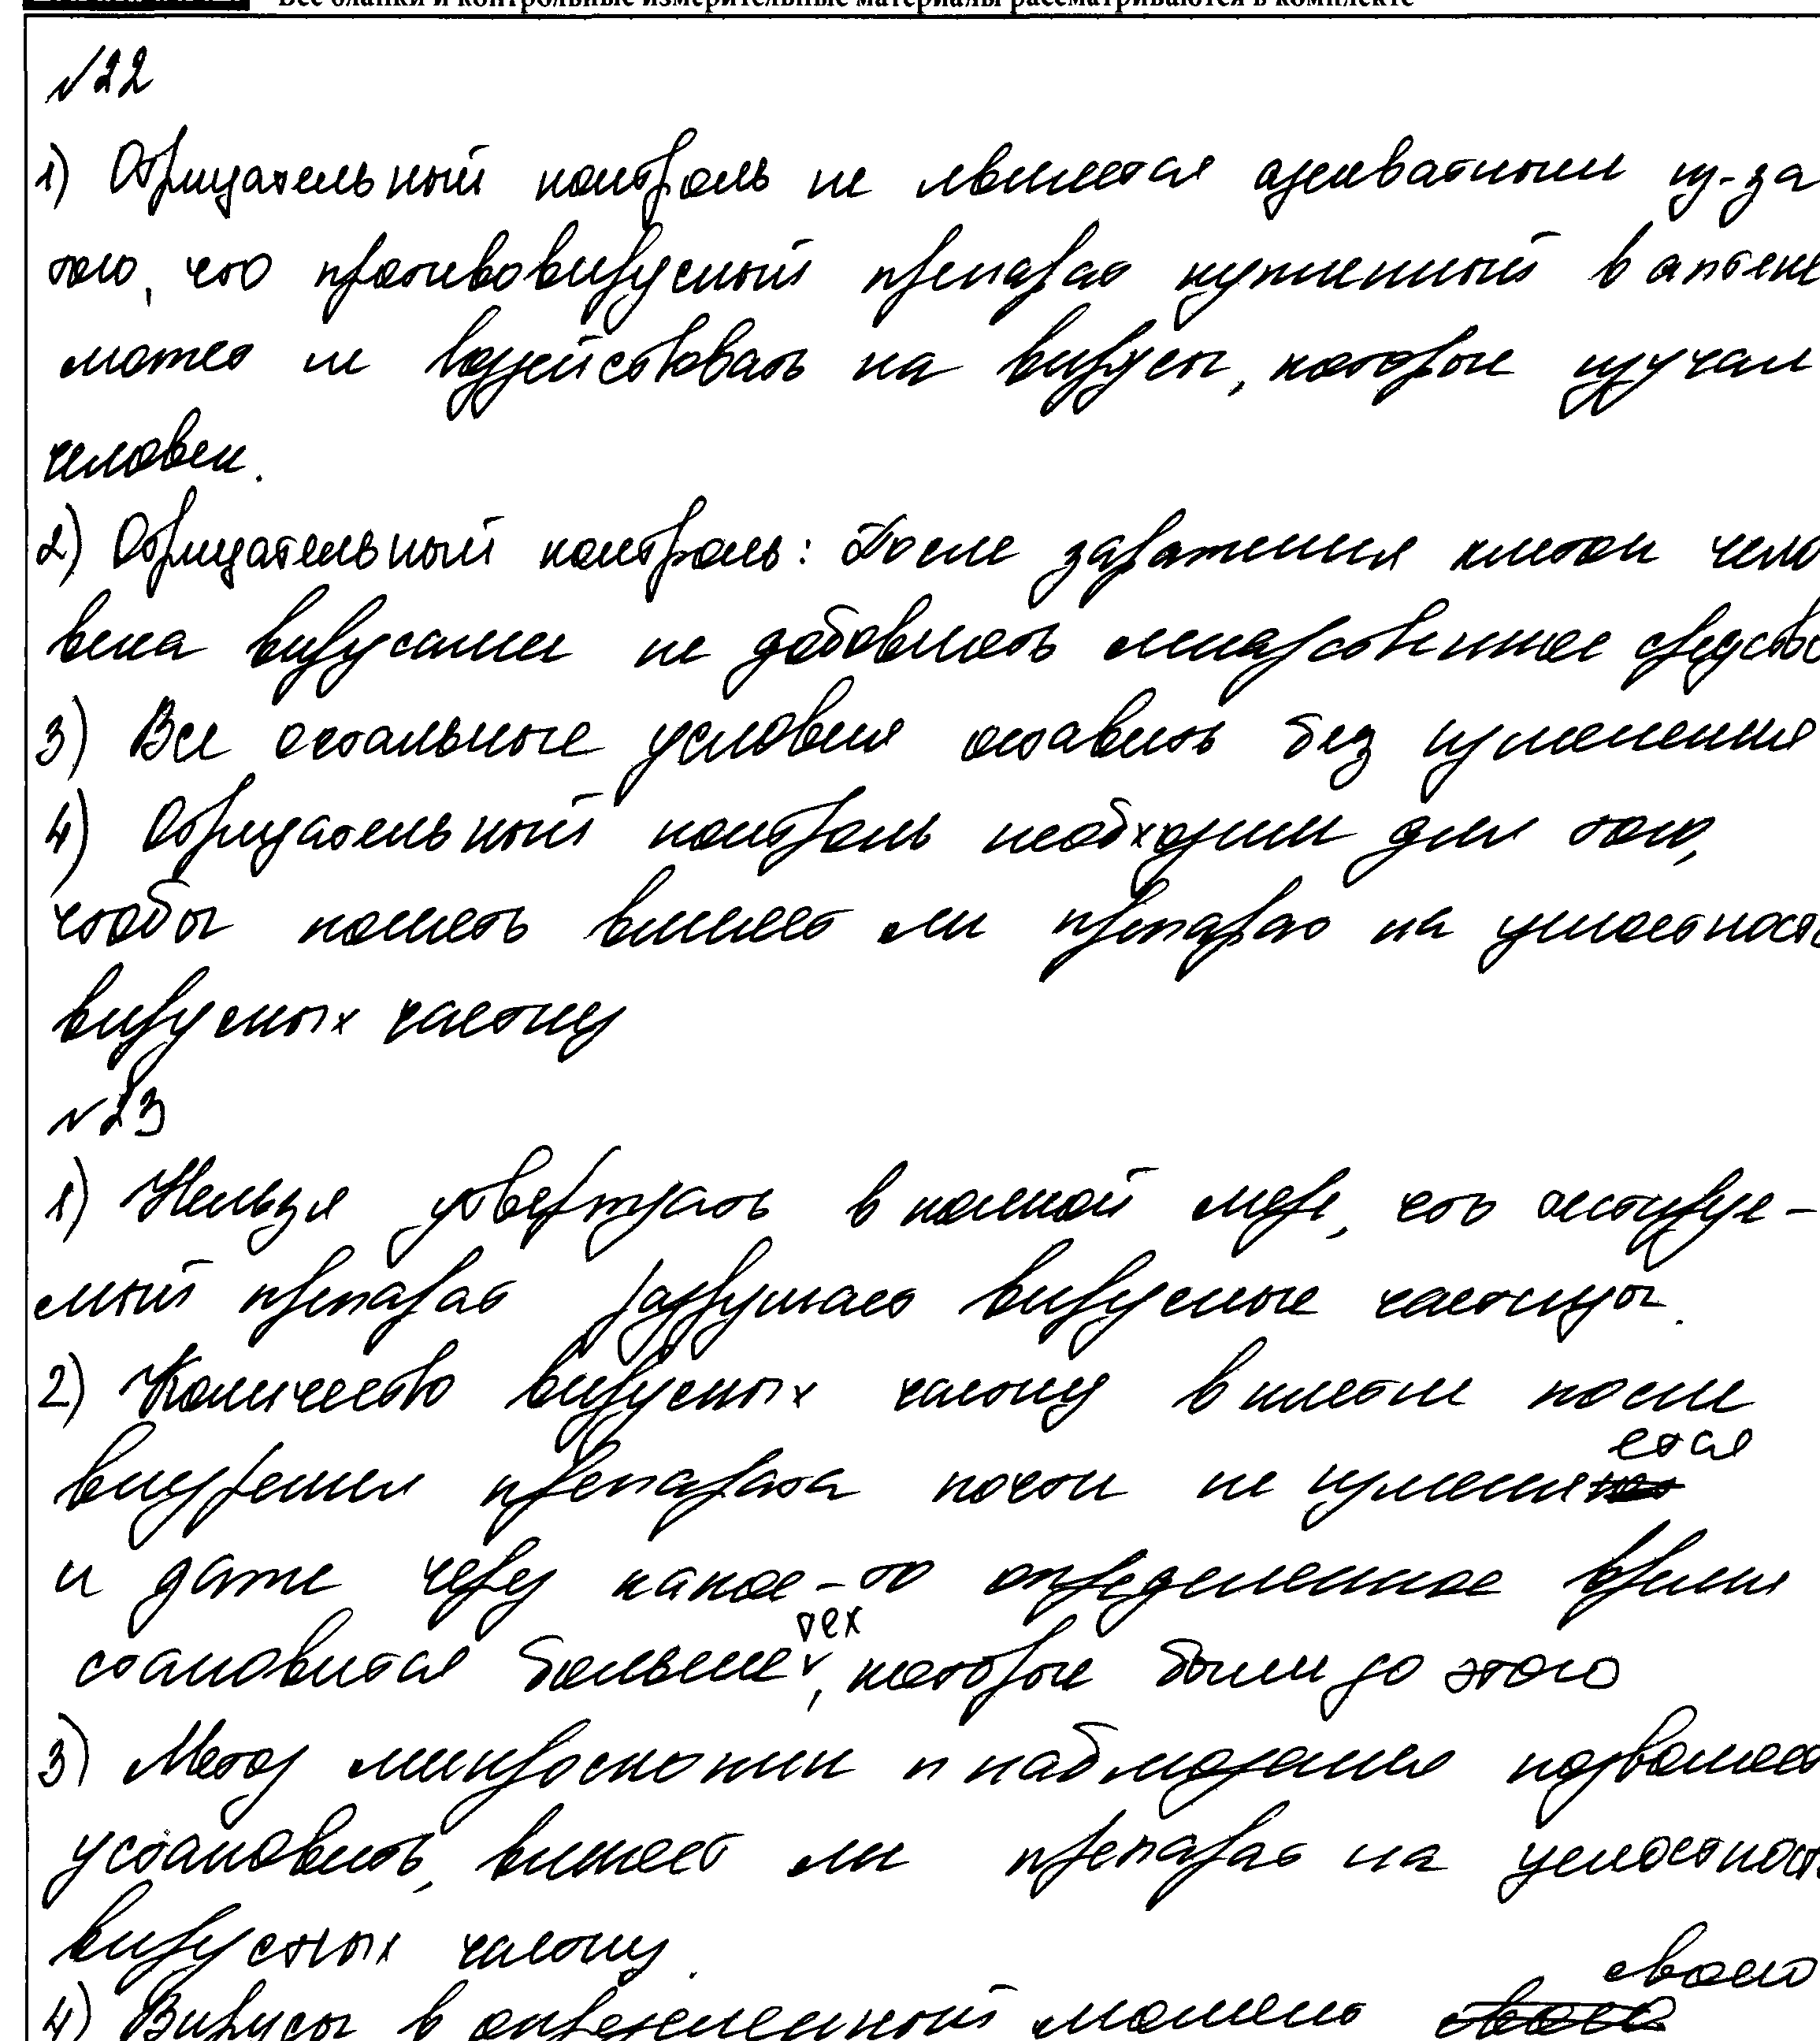 Все бланки и контрольные измерительные материалы рассматриваются в комплекте
№22
1) Отрицательный контроль не является адекватным из-за
того, что противовирусный препарат купленный в аптеке
может не воздействовать на вирусы, которые изучал
человек.
2) Отрицательный контроль: После заражения клеток чело
века вирусами не добавлять лекарственное средство
3) Все остальные условия оставить без изменения
4) Отрицательный контроль необходим для того,
чтобы понять влияет ли препарат на целостность
вирусных частиц
№23
1) Нельзя утверждать в полной мере, что тестируе-
мый препарат разрушает вирусные частицы.
2) Количество вирусных частиц в клетке после
внедрения препарата почти не изменяется
и даже через какое-то определенное время
становится больше тех, которые были до этого
3) Метод микроскопии и наблюдения позволяет
установить, влияет ли препарат на целостность
вирусных частиц.
4) Вирусы в определенный момент своего